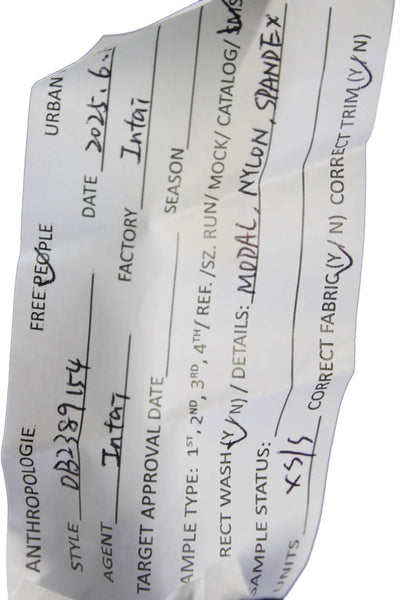 ANTHROPOLOGIE FREE PEOPLE URBAN
STYLE OB2389154 DATE 2025.6.
AGENT Intai FACTORY Intai
TARGET APPROVAL DATE SEASON
AMPLE TYPE: 1ST, 2ND, 3RD, 4TH/ REF. /SZ. RUN/ MOCK/ CATALOG/ SMS
RECT WASH (Y/N) / DETAILS: MODAL, NYLON, SPANDEX
SAMPLE STATUS:
UNITS XS/S CORRECT FABRIC (Y/N) CORRECT TRIM (Y/N)